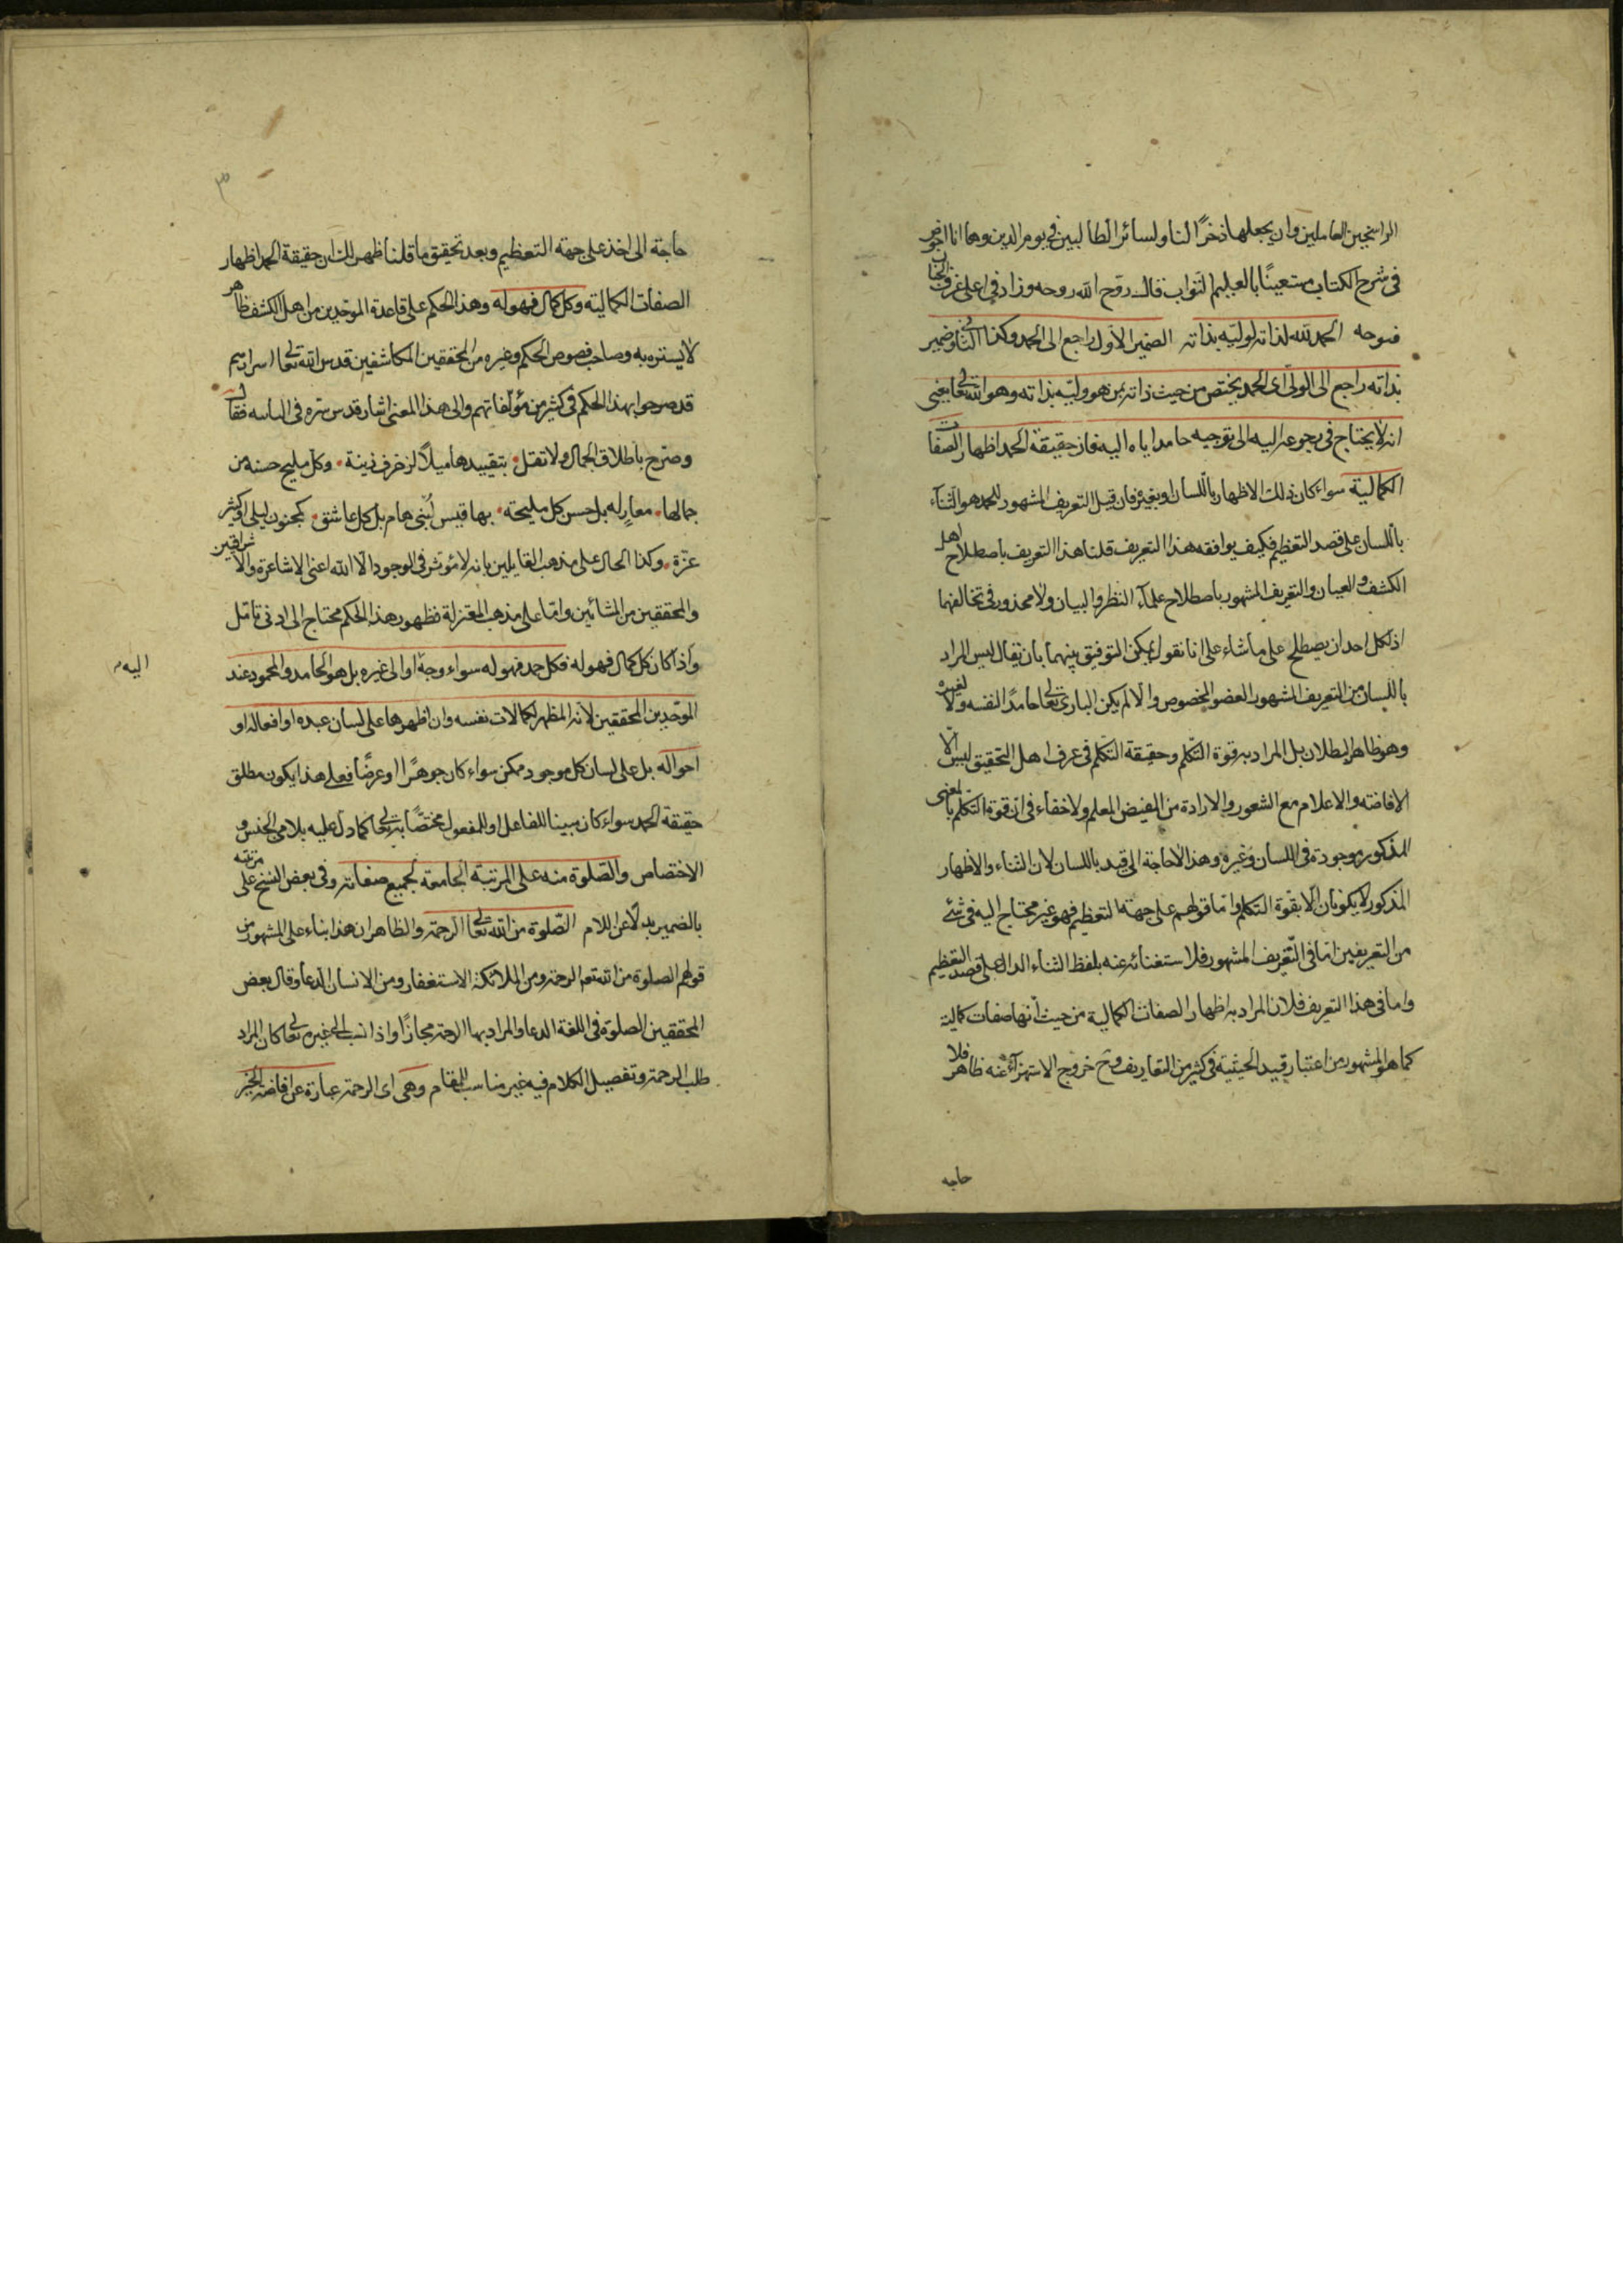 الراسخين العاملين وان يجعلها ذخرًا لنا ولسائر الطالبين في يوم الدين وها انا اخوض
في شرح الكتاب مستعينًا بالعليم التواب قال روّح الله روحه وزاد في اعلى غرف الجنان
فتوحه الحمد لله لذاته لوليّه بذاته الضمير الاول راجع الى الحمد وكذا الثاني وضمير
بذاته راجع الى الولي اى الحمد يختص من حيث ذاته بمن هو وليّه بذاته وهو الله تعالى يعني
انه لا يحتاج في رجوعه اليه الى توجيه حامد اياه اليه فان حقيقة الحمد اظهار الصفات
الكمالية سواء كان ذلك الاظهار باللسان او بغيره فان قيل التعريف المشهور للحمد هو الثناء
باللسان على قصد التعظيم فكيف يوافقه هذا التعريف قلنا هذا التعريف باصطلاح اهل
الكشف والعيان والتعريف المشهور باصطلاح علماء النظر والبيان ولا محذور في تخالفهما
اذ لكل احد ان يصطلح على ما شاء على انا نقول يمكن التوفيق بينهما بان يقال ليس المراد
باللسان من التعريف المشهور العضو المخصوص والا لم يكن الباري تعالى حامدًا لنفسه ولا لغيره
وهو ظاهر البطلان بل المراد به قوة التكلم وحقيقة التكلم في عرف اهل التحقيق ليس الا
الافاضة والاعلام مع الشعور والارادة من المفيض المعلم ولا خفاء في ان قوة التكلم بالمعنى
المذكور موجودة في اللسان وغيره وهذا لا حاجة الى قيد باللسان لان الثناء والاظهار
المذكور لا يكونان الا بقوة التكلم واما قولهم على جهة التعظيم فهو غير محتاج اليه في شئ
من التعريفين اما في التعريف المشهور فلاستغنائه عنه بلفظ الثناء الدال على قصد التعظيم
واما في هذا التعريف فلان المراد به اظهار الصفات الكمالية من حيث انها صفات كمالية
كما هو المشهور من اعتبار قيد الحيثية في كثير من التعاريف وح خروج الاستهزاء عنه ظاهر فلا
حاجه
٣
حاجة الى اخذ على جهة التعظيم وبعد تحقيق ما قلنا ظهر لك ان حقيقة الحمد اظهار
الصفات الكمالية وكل كمال فهو له وهذا الحكم على قاعدة الموحّدين من اهل الكشف ظاهر
لا يستتر به وصاحب فصوص الحكم وغيره من المحققين المكاشفين قدس الله تعالى اسرارهم
قد صرحوا بهذا الحكم في كثير من مؤلفاتهم والى هذا المعنى اشار قدس سره في فقال
وصرّح باطلاق الجمال ولا تقل بتقييدها ميلًا لزخرف زينة وكل مليح حسنه من
جمالها معار له بل حسن كل مليحة بها قيس لُبنى هام بل كل عاشق كمجنون ليلى او كثيّر
عزّة وكذا الحال على مذهب القايلين بانه لا مؤثر في الوجود الا الله اعني الاشاعرة والاشراقيين
والمحققين من المشائين واما على مذهب المعتزلة فظهور هذا الحكم محتاج الى ادنى تامّل
واذا كان كل كمال فهو له فكل حمد فهو له سواء وجه او الى غيره بل هو الحامد والمحمود عند
اليه
الموحّدين المحققين لانه المظهر لكمالات نفسه وان اظهرها على لسان عبده او افعاله او
احواله بل على لسان كل موجود ممكن سواء كان جوهرًا او عرضًا فعلى هذا يكون مطلق
حقيقة الحمد سواء كان مبينا للفاعل او للمفعول مختصًا به تعالى كما دل عليه بلامي الجنس و
الاختصاص والصّلوة منه على المرتبة الجامعة لجميع صفاته وفي بعض النسخ على مرتبته
بالضمير بدلًا عن اللام الصّلوة من الله تعالى الرحمة والظاهر ان هذا بناء على المشهور من
قولهم الصلوة من الله تعم الرحمة ومن الملائكة الاستغفار ومن الانسان الدعا وقال بعض
المحققين الصلوة في اللغة الدعا والمراد بها الرحمة مجازًا واذا نسب الى غيره تعالى كان المراد
طلب الرحمة وتفصيل الكلام فيه غير مناسب للمقام وهى اى الرحمة عبارة عن افاضة الخير